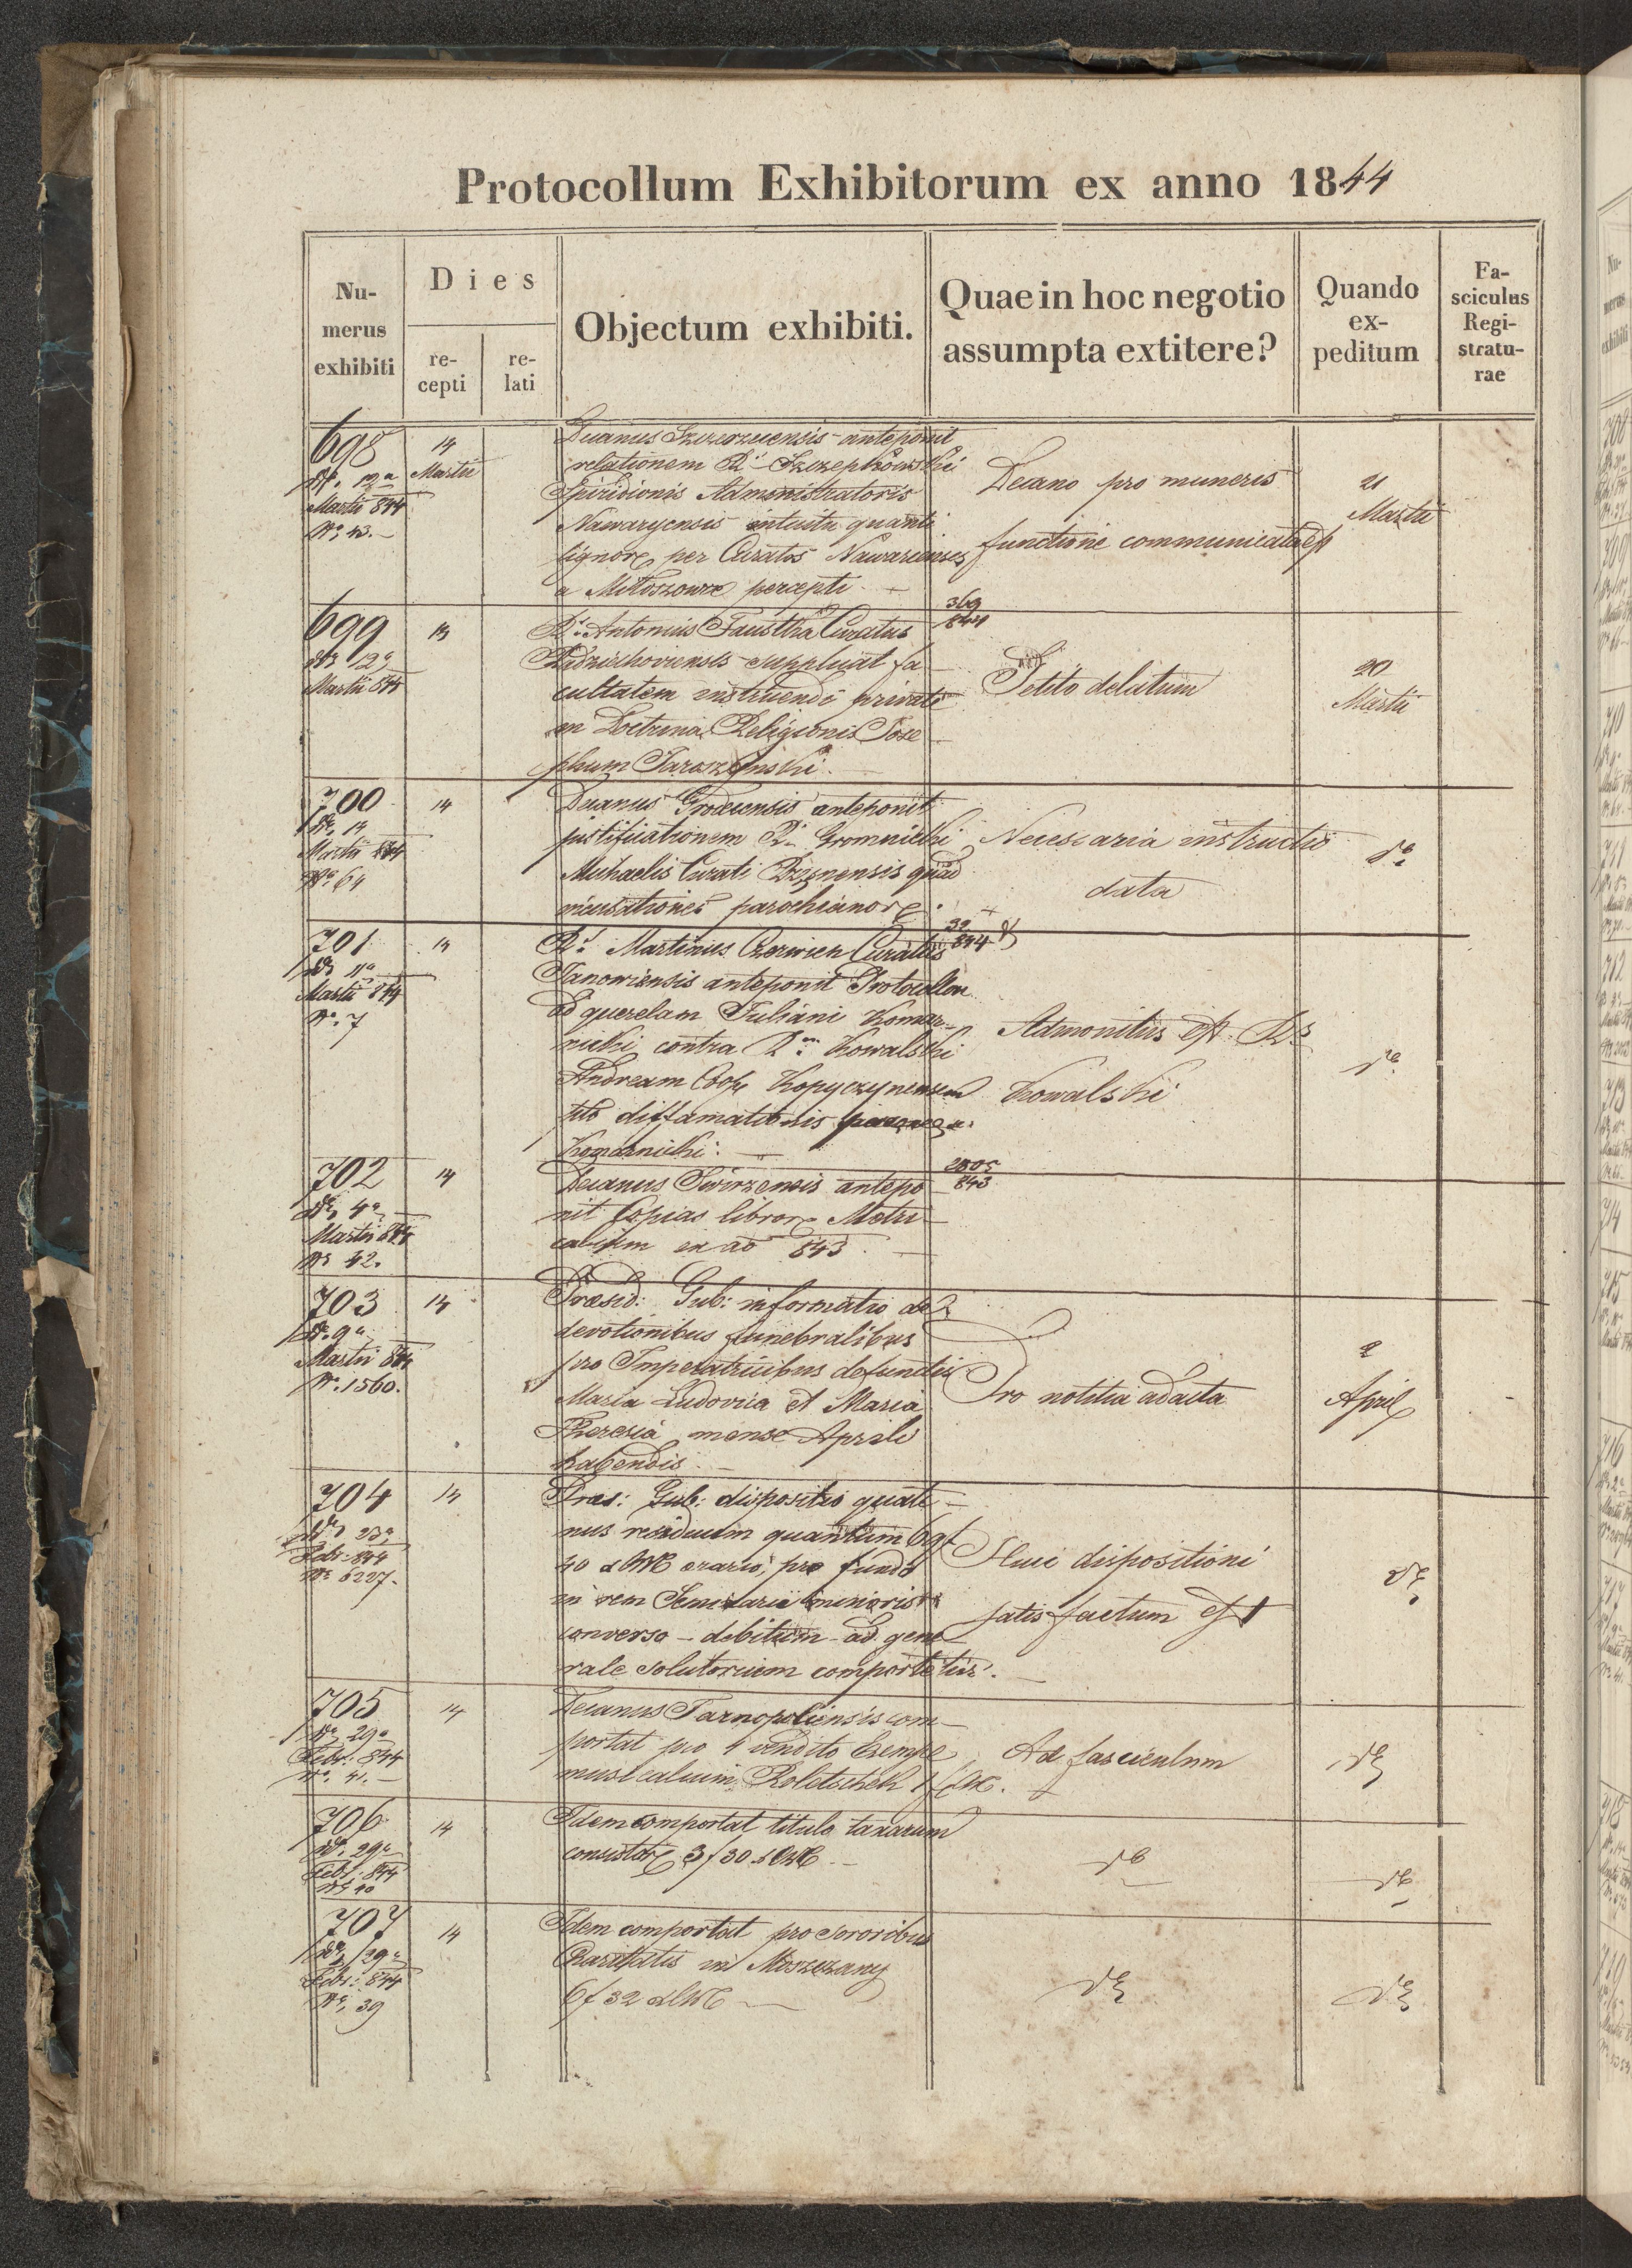 Protocollum Exhibitorum ex anno 1844
Numerus exhibiti
Dies
recepti
relati
Objectum exhibiti.
Quae in hoc negotio assumpta extitere?
Quando expeditum
Fasciculus Registraturae
698
Martii 844
Nr. 43.
14
Martii
Decanus Szczerzecensis anteponit
relationem Rdi Szczepkowski
Spiridionis Administratoris
Nawaryensis intuitu quanti
lignor per Curatos Nawarienses
a Miłoszowce percepti
Decano pro muneris
functione communicata est
21
Martii
699
dto 12a
Martii 844
14
Rd. Antonius Faustka Curatus
supplicat fa
cultatem instruendi privatе
in Doctrina Religionis Jose
phum Jaroszyński
369
844
Petito delatum
20
Martii
700
dto 14
Martii 844
Nr. 64
14
Decanus Grodecensis anteponit
justificationem Rdi Gromnicki
Michaelis Curati quoad
incusationes parochianor
Necessaria instructio
data
do
701
dto 11a
Martii 844
Nr. 7
14
Rd. Martinus Czerwien Curatus
Janoviensis anteponit Protocollon
ad querelam Juliani Komar-
nicki contra Rdum Kowalski
Andream Coop Kopyczynensem
tto diffamationis
Komarnicki.
39
844
Admonitus est Rds
Kowalski
do
702
dto 4a
Martii 844
Nr 42.
14
Decanus Swirzensis antepo
nit Copias libror Metri
calium ex ao 843
2805
843
703
dto 9a
Martii 844
Nr. 1560.
14
Praesid: Gub: informatio de
devotionibus funebralibus
pro Imperatricibus defunctis
Maria Ludovica et Maria
Theresia mense Aprili
habendis
Pro notitia ad acta
2
April
704
dto 23a
Febr: 844
Nr 6227.
14
Praes: Gub: dispositio quate
nus residuum quantum 69f
40 x CMC erario, pro fundo
in rem Seminarii minoris
converso - debitum - ad gene
rale solutorium comportetur.
Huic dispositioni
satisfactum est
do
705
dto 29a
Febr: 844
Nr. 41.
14
Decanus Tarnopoliensis com-
portat pro 1 vendito Exempl
musicalium Roletschek 1f CMC.
Ad fasciculum
do
706
dto 29a
Febr. 844
Nr 40
14
Idem comportat titulo taxarum
consistor 3f 30 x CMC
do
do
707
dto 29a
Febr: 844
Nr. 39
14
Idem comportat pro sororibus
Charitatis in Moszczany
6f 32 x CMC
do
do